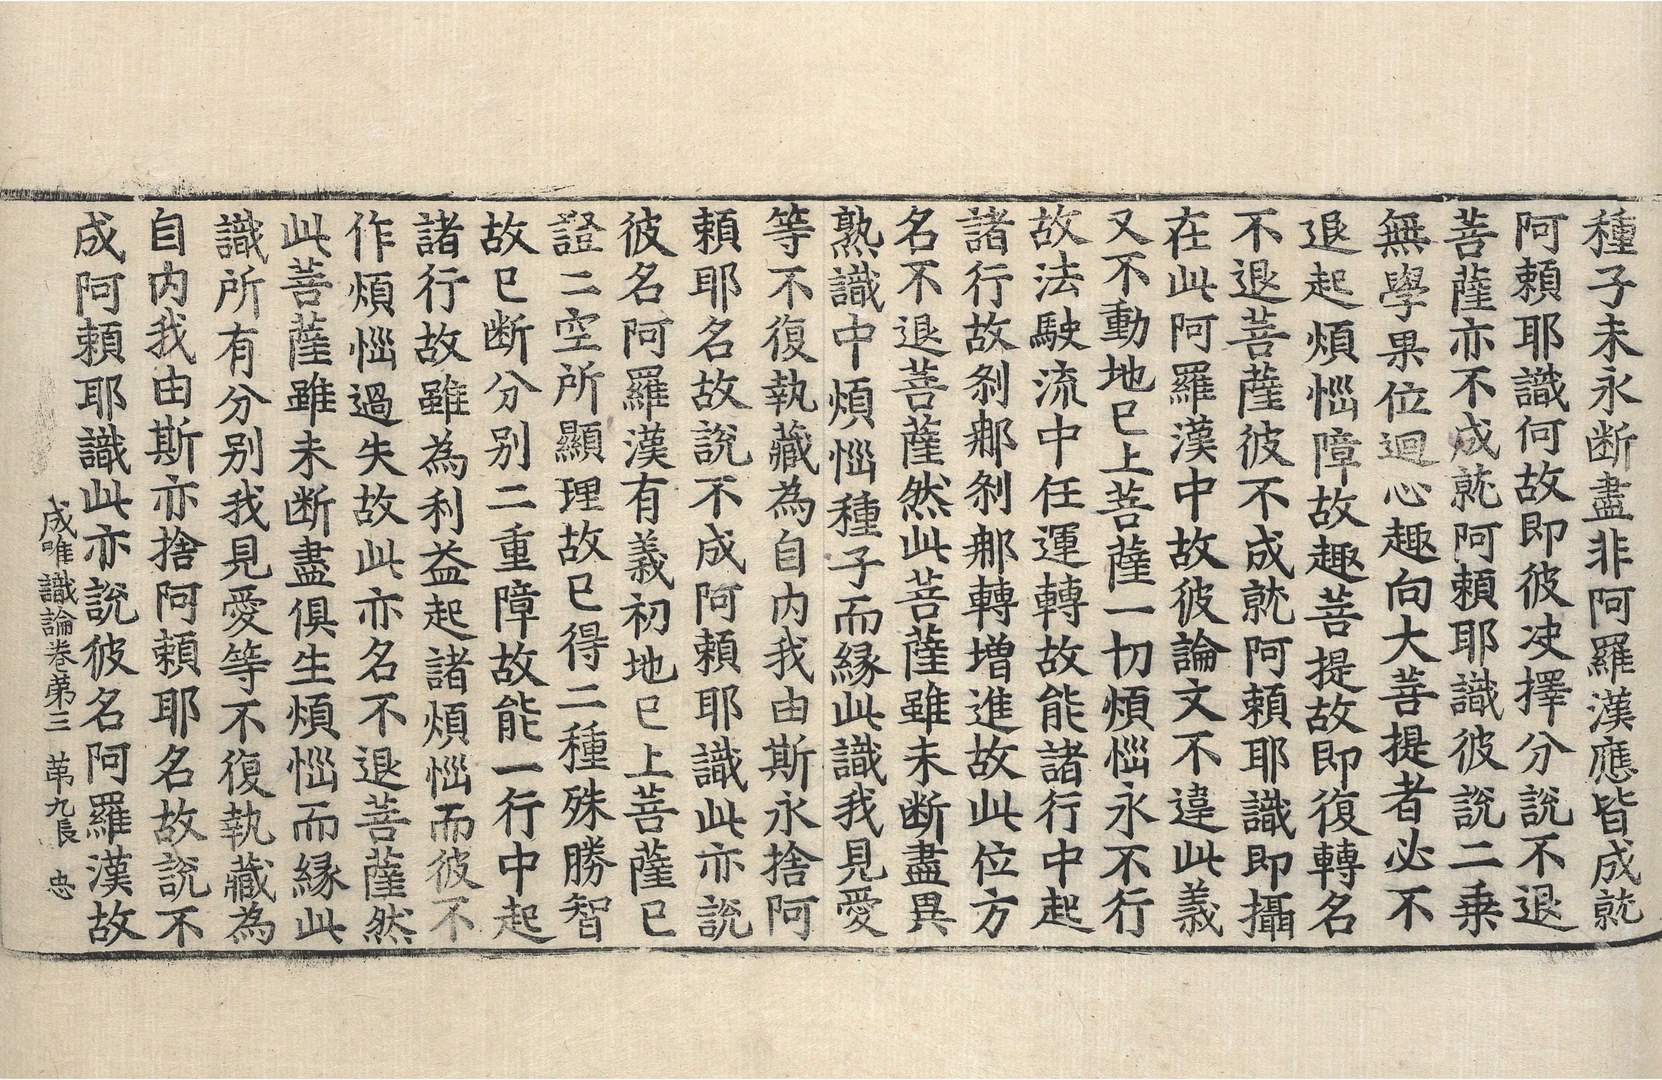 種子未永断盡非阿羅漢應皆成就
阿賴耶識何故即彼决擇分說不退
菩薩亦不成就阿賴耶識彼說二乗
無學果位迴心趣向大菩提者必不
退起煩惱障故趣菩提故即復轉名
不退菩薩彼不成就阿賴耶識即攝
在此阿羅漢中故彼論文不違此義
又不動地已上菩薩一切煩惱永不行
故法駛流中任運轉故能諸行中起
諸行故刹那刹那轉增進故此位方
名不退菩薩然此菩薩雖未断盡異
熟識中煩惱種子而縁此識我見愛
等不復執藏為自内我由斯永捨阿
賴耶名故說不成阿賴耶識此亦說
彼名阿羅漢有義初地已上菩薩已
證二空所顯理故已得二種殊勝智
故已断分别二重障故能一行中起
諸行故雖為利益起諸煩惱而彼不
作煩惱過失故此亦名不退菩薩然
此菩薩雖未断盡俱生煩惱而縁此
識所有分别我見愛等不復執藏為
自内我由斯亦捨阿賴耶名故說不
成阿賴耶識此亦說彼名阿羅漢故
成唯識論卷第三 第九長 忠